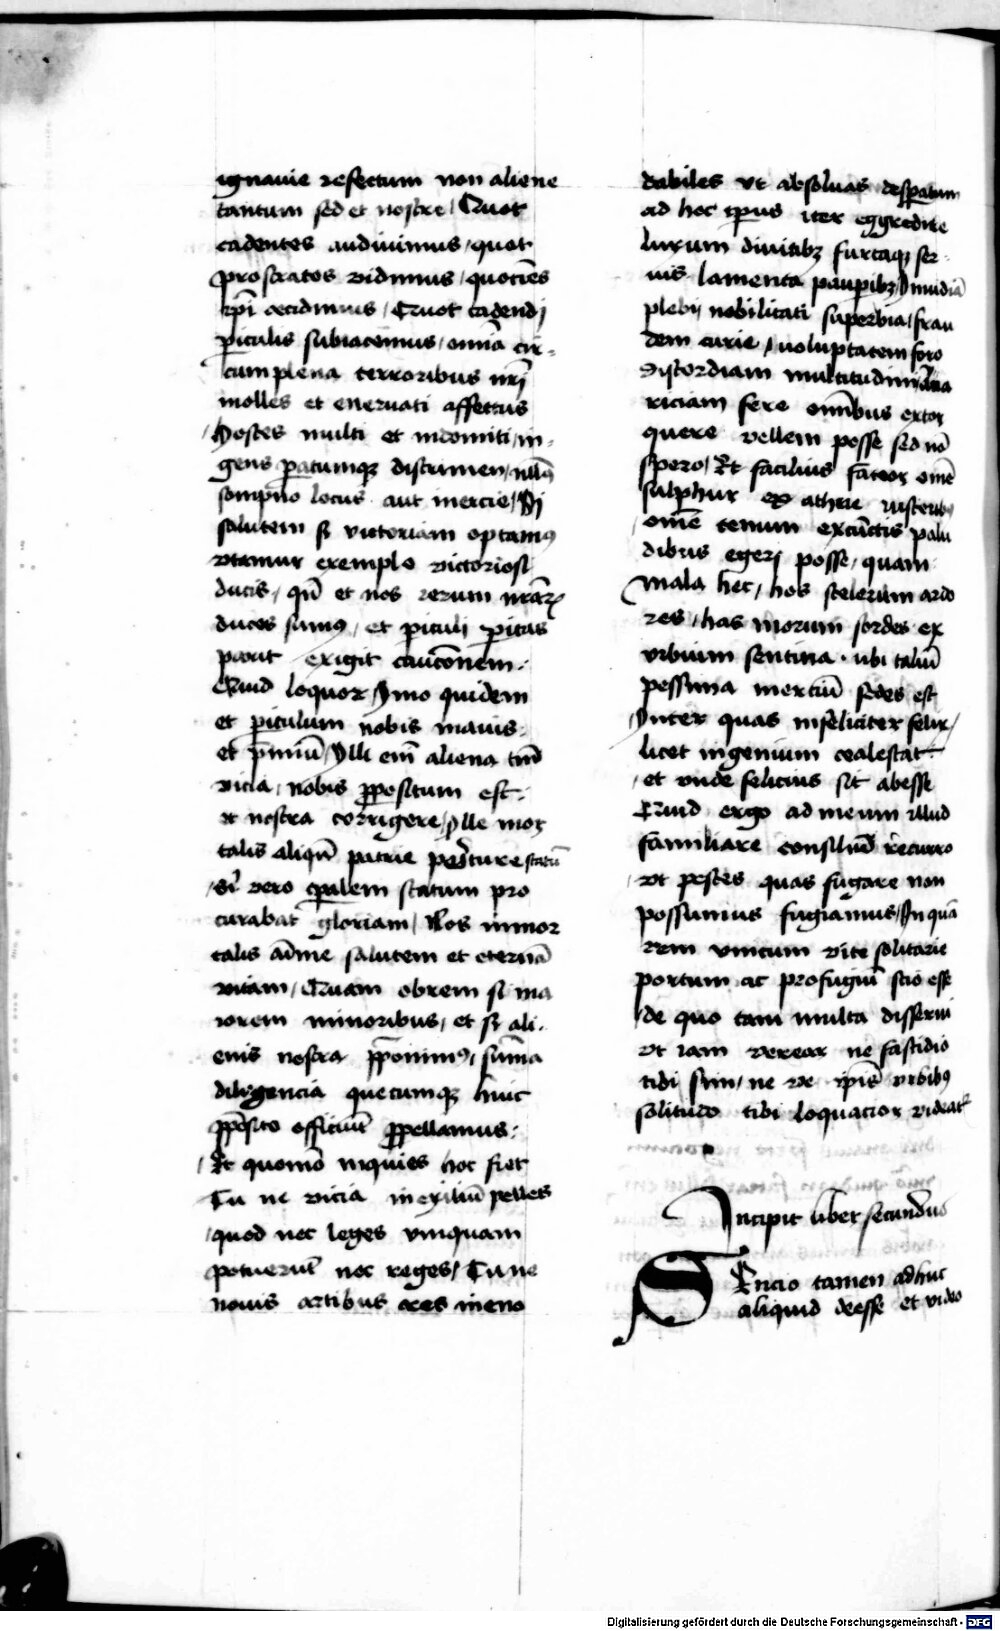 ignauie refectum non aliene
tantum sed et nostre / Quot
cadentes audiuimus / quot
prostratos vidimus / quociēs
ip̄i cecidimus / Quot cadendi
piculis subiacemus / omīa cir-
cumplena terroribus nr̄i
molles et eneruati affectus
/ Hostes multi et indomiti / in-
gens paratumqȝ discrimen / nullꝰ
sompno locus aut inercie / Si
salutem si victoriam optamꝰ
vtamur exemplo victoriosi
ducis / qn̄ et nos rerum nr̄arꝝ
duces sumꝰ / et piculi
exigit caucōnem .
Quid loquor / ymo quidem
et piculum nobis maius .
et p̄miū / Illi em̄ aliena tm̄
vicia / nobis ꝓpositum est .
nostra corrigere / Ille mor
talis aliqn̄ patrie statū
/ si vero statum pro
curabat gloriam / Nos inmor
talis aīme salutem et eternā
vitam / Quam obrem si ma
iorem minoribus / et si ali .
enis nostra p̄ponimꝰ / sūma
diligencia quecumqȝ huic
ꝓposito officiūt ꝓpellamus .
/ Et quomō inquies hoc fiet
Tu ne vicia in exiliū pelles
/ quod nec leges vnquam
potuerūt nec reges / Tu ne
nouis artibus ares meno
dabiles vt absoluas desperatum
ad hoc tp̄us iter eggredite
luxum diuitibȝ furtaqȝ ser-
uis lamenta paupibȝ / Inuidiā
plebi / nobilitati superbia / frau
dem curie / voluptatem foro
Discordiam multitudini / aua
riciam fere om̄ibus extor
quere vellem posse sed nō
spero / Et facilius fateor om̄e
sulphur ex athne visceribꝰ
/ om̄e cenum excunctis palu
dibus egeri posse / quam
mala hec / hos scelerum ardo
res / has morum sordes ex
vrbium sentina . ubi taliū
pessima merciū sedes est
/ Inter quas infeliciter
licet ingenium cealestat
/ et vnde felicius sit abesse
Quid ergo ad meum illud
familiare consiliū recurro
/ vt pestes quas fugare non
possumus fugiamus / In quā
rem vnicum vite solitarie
portum ac profugiū scio esse
/ de quo tam multa disserui
vt iam verear ne fastidio
tidi sim / ne ve ip̄is vrbibꝰ
solitudo tibi loquacior videat᷑
Incipit liber secundus
SEncio tamen adhuc
aliquid deesse et video
Digitalisierung gefördert durch die Deutsche Forschungsgemeinschaft - DFG